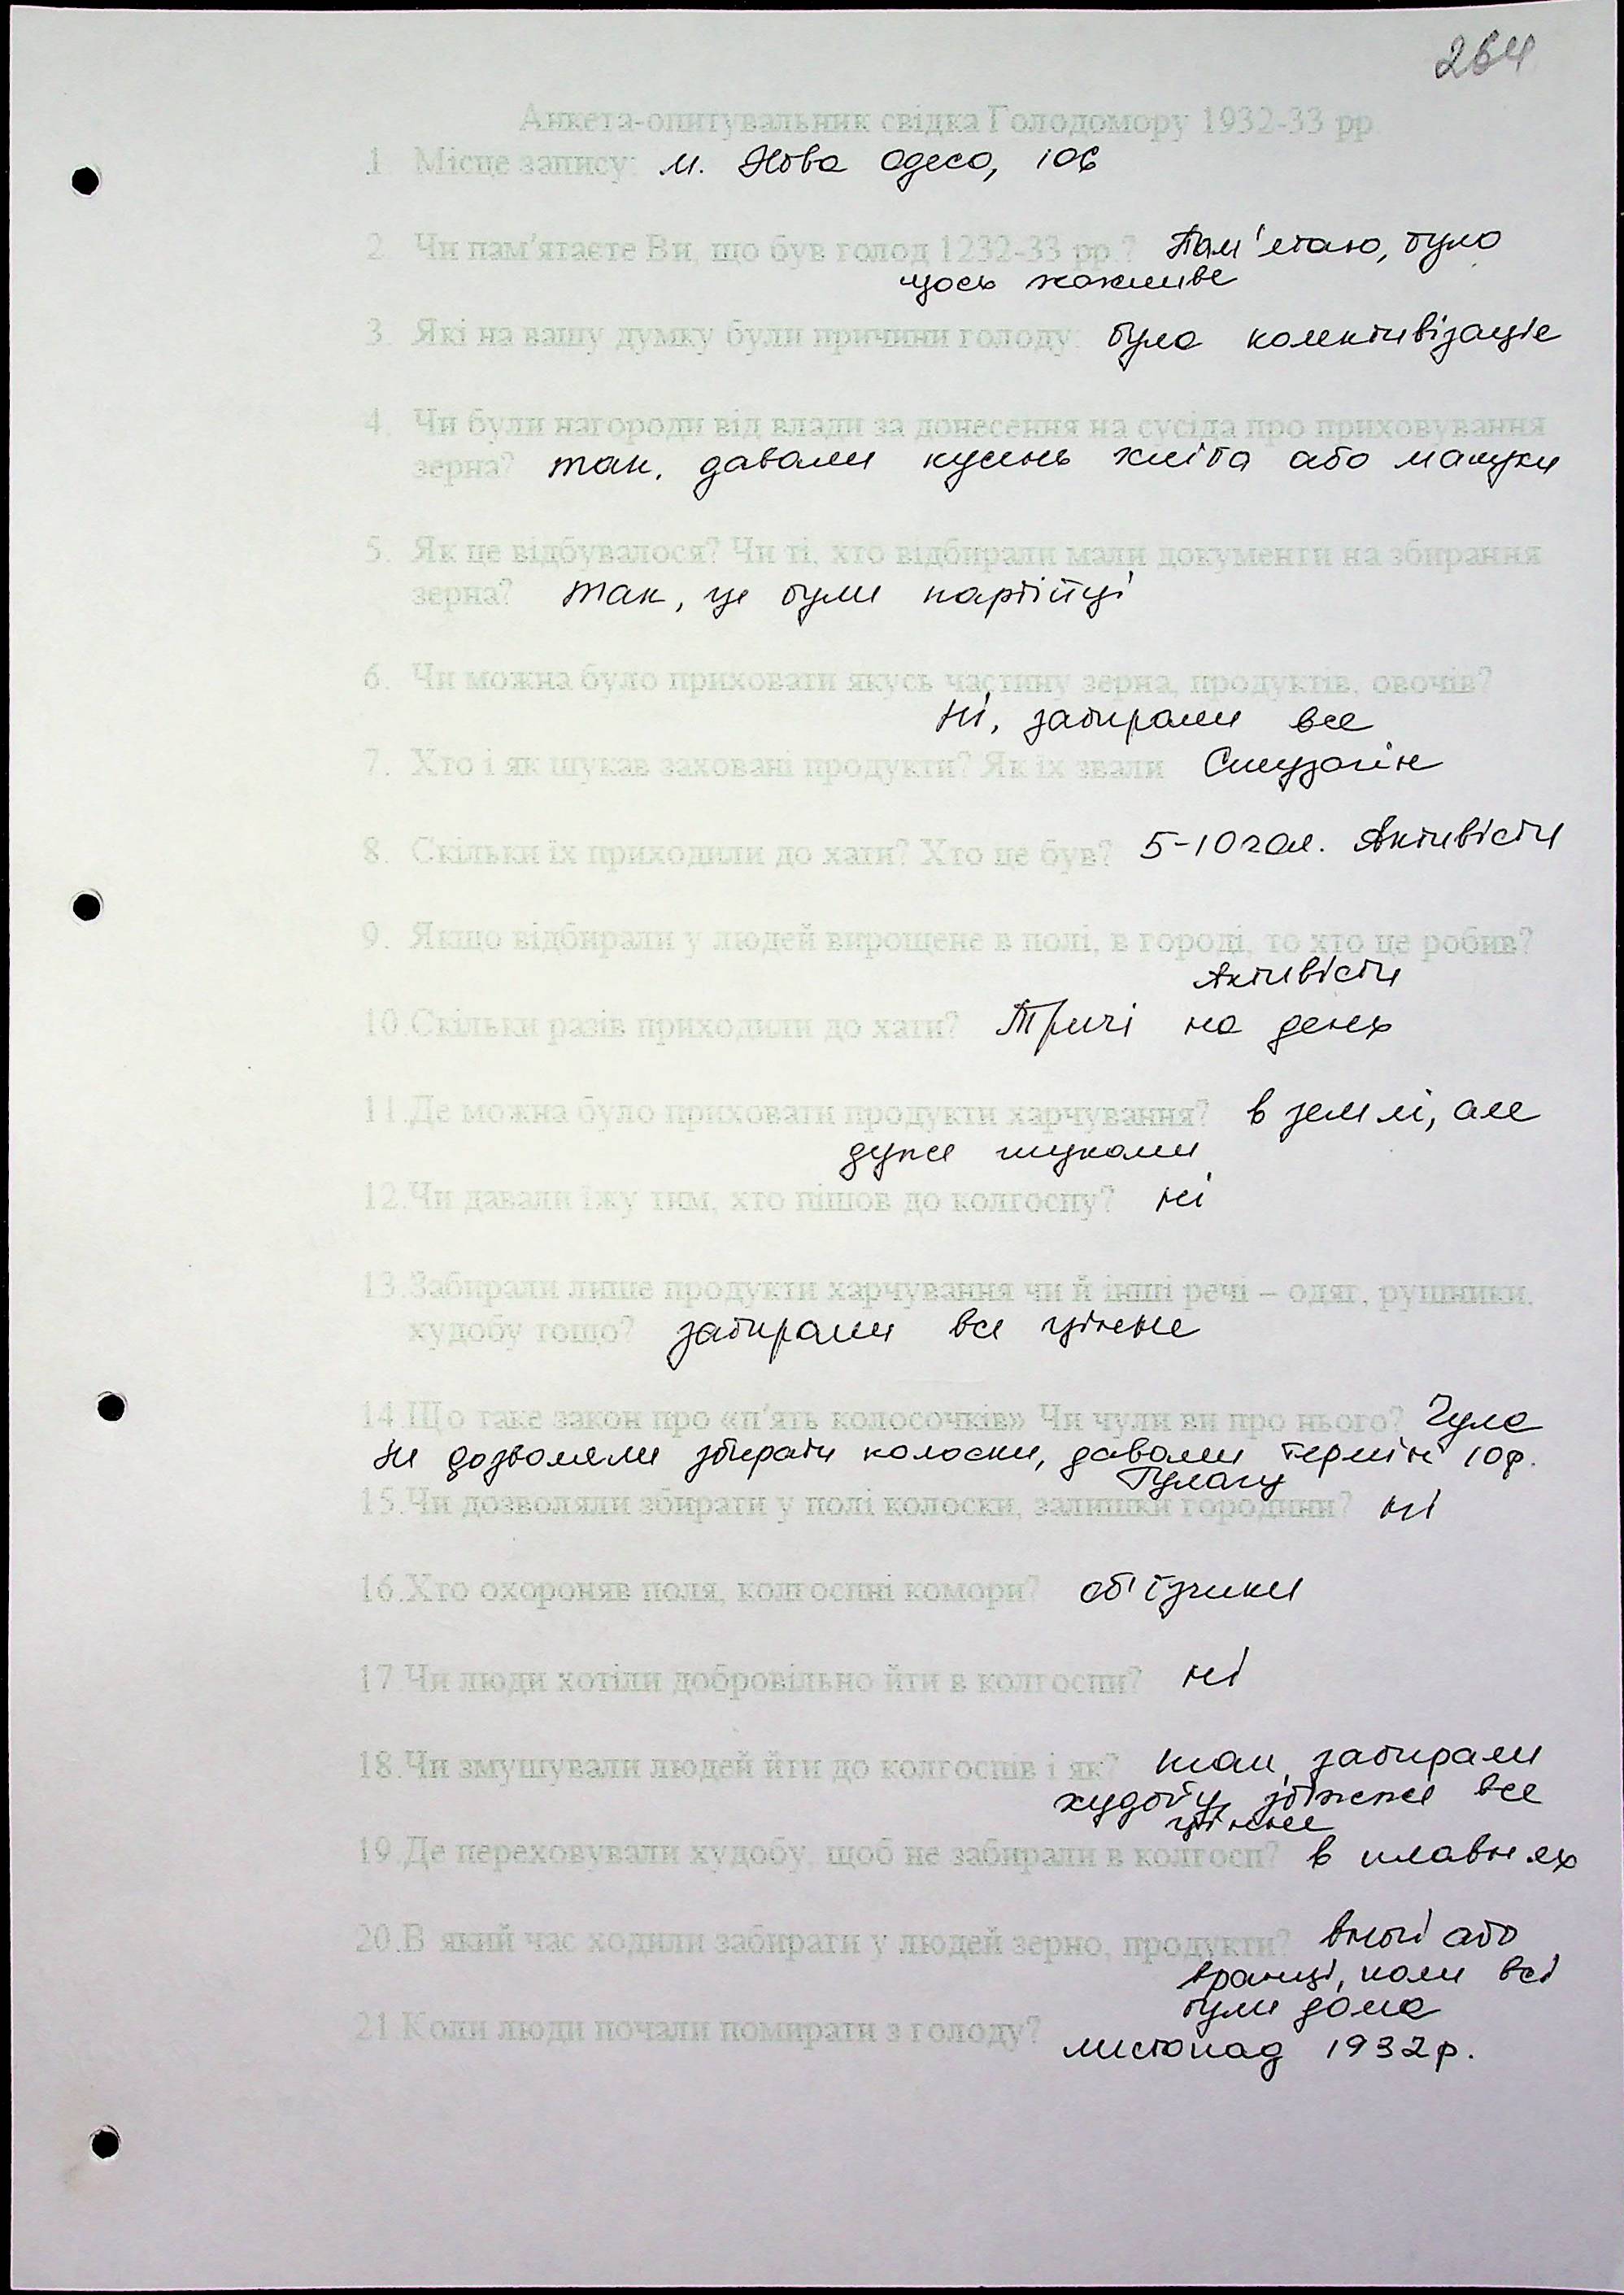 264
Анкета-опитувальник свідка Голодомору 1932-33 рр
1 Місце запису: м. Нова Одеса,
2. Чи пам'ятаєте Ви, що був голод 1232-33 рр.? Пам'ятаю, було
щось жахливе
3. Які на вашу думку були причини голоду: була колективізація
4. Чи були нагороди від влади за донесення на сусіда про приховування
зерна? так, давали кусень хліба або макухи
5. Як це відбувалося? Чи ті, хто відбирали мали документи на збирання
зерна? так, це були партійці
6. Чи можна було приховати якусь частину зерна, продуктів, овочів?
Ні, забирали все
7. Хто і як шукав заховані продукти? Як їх звали
8. Скільки їх приходили до хати? Хто це був? 5-10 чол. Активісти
9. Якщо відбирали у людей вирощене в полі, в городі, то хто це робив?
Активісти
10. Скільки разів приходили до хати? Тричі на день
11. Де можна було приховати продукти харчування? в землі, але
дуже шукали
12. Чи давали їжу тим, хто пішов до колгоспу? ні
13. Забирали лише продукти харчування чи й інші речі – одяг, рушники,
худобу тощо? забирали все цінне
14. Що таке закон про «п'ять колосочків» Чи чули ви про нього? Чула
Не дозволяли збирати колоски, давали термін 10р.
Гулагу
15. Чи дозволяли збирати у полі колоски, залишки городини? ні
16. Хто охороняв поля, колгоспні комори? об'їзчики
17. Чи люди хотіли добровільно йти в колгоспи? ні
18. Чи змушували людей йти до колгоспів і як? так, забирали
худобу, збіжжя все
цінне
19. Де переховували худобу, щоб не забирали в колгосп? в плавнях
20. В який час ходили забирати у людей зерно, продукти? вночі або
вранці, коли всі
були дома
21 Коли люди почали помирати з голоду?
листопад 1932р.